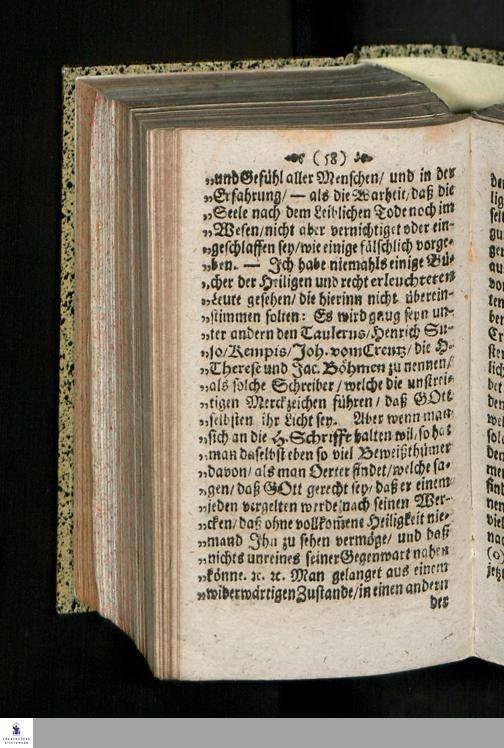 (58)
„und Gefühl aller Menschen/ und in der
„Erfahrung/ — als die Warheit/ daß die
„Seele nach dem Leiblichen Tode noch im
„Wesen/ nicht aber vernichtiget oder ein-
„geschlaffen sey/ wie einige fälschlich vorge-
„ben. — Ich habe niemahls einige Bü-
„cher der Heiligen und recht erleuchteten
„Leute gesehen/ die hierinn nicht überein-
„stimmen solten: Es wird genug seyn un-
„ter andern den Taulerus/ Henrich Su-
„so/ Kempis/ Joh. vom Creutz/ die H.
„Therese und Jac. Böhmen zu nennen/
„als solche Schreiber/ welche die unstrei-
„tigen Merckzeichen führen/ daß GOtt
„selbsten ihr Licht sey. Aber wenn man
„sich an die H. Schrifft halten wil/ so hat
„man daselbst eben so viel Beweißthümer
„davon/ als man Oerter findet/ welche sa-
„gen/ daß GOtt gerecht sey/ daß er einem
„jeden vergelten werde nach seinen Wer-
„cken/ daß ohne vollkom̃ene Heiligkeit nie-
„mand Ihn zu sehen vermöge/ und daß
„nichts unreines seiner Gegenwart nahen
„könne. ꝛc. ꝛc. Man gelanget aus einem
„widerwärtigen Zustande/ in einen andern
der